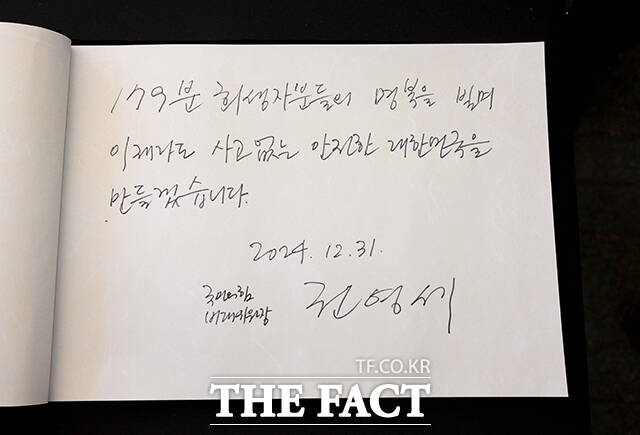 179분 희생자분들의 명복을 빌며
이제라도 사고없는 안전한 대한민국을
만들겠습니다.
2024. 12. 31.
국민의힘
비대위원장
권영세
TF.CO.KR
THE FACT